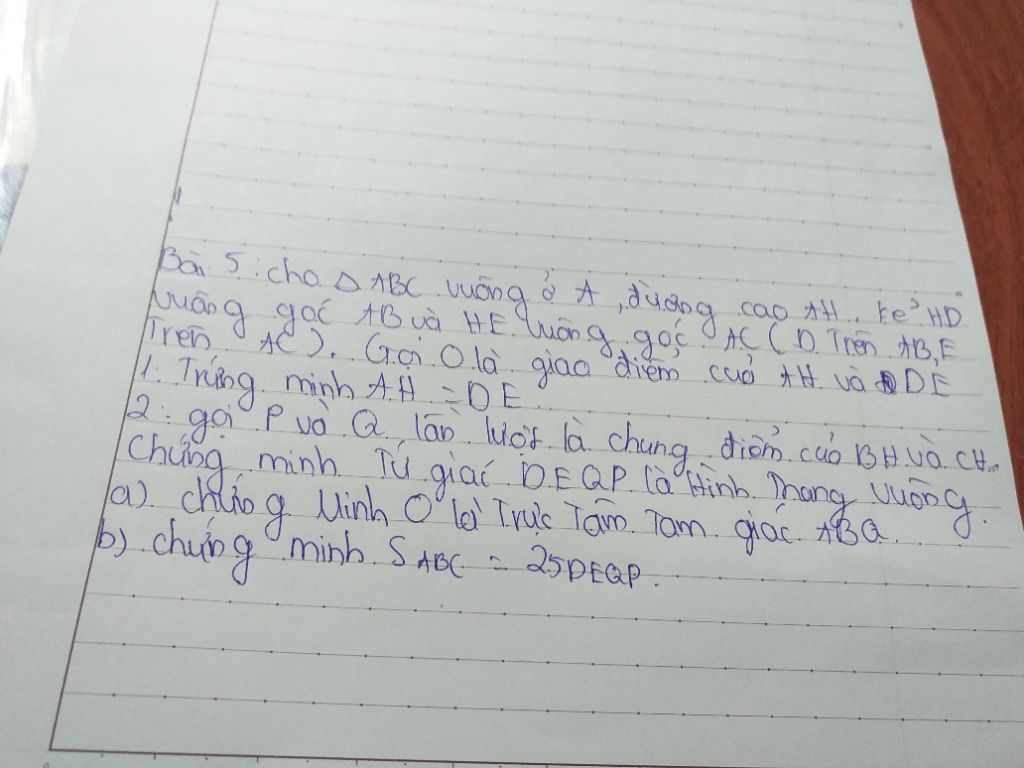 Bài 5: cho △ ABC vuông ở A, đường cao AH. kẻ HD
vuông góc AB và HE vuông góc AC (D Trên AB, E
Trên AC). Gọi O là giao điểm của AH và DE
1. Trứng minh AH = DE.
2: gọi P và Q lần lượt là chung điểm của BH và CH.
Chứng minh Tứ giác DEQP là Hình Thang vuông.
a). chứng Minh O là Trực Tâm Tam giác ABQ.
b) chứng minh SABC = 2SDEQP.